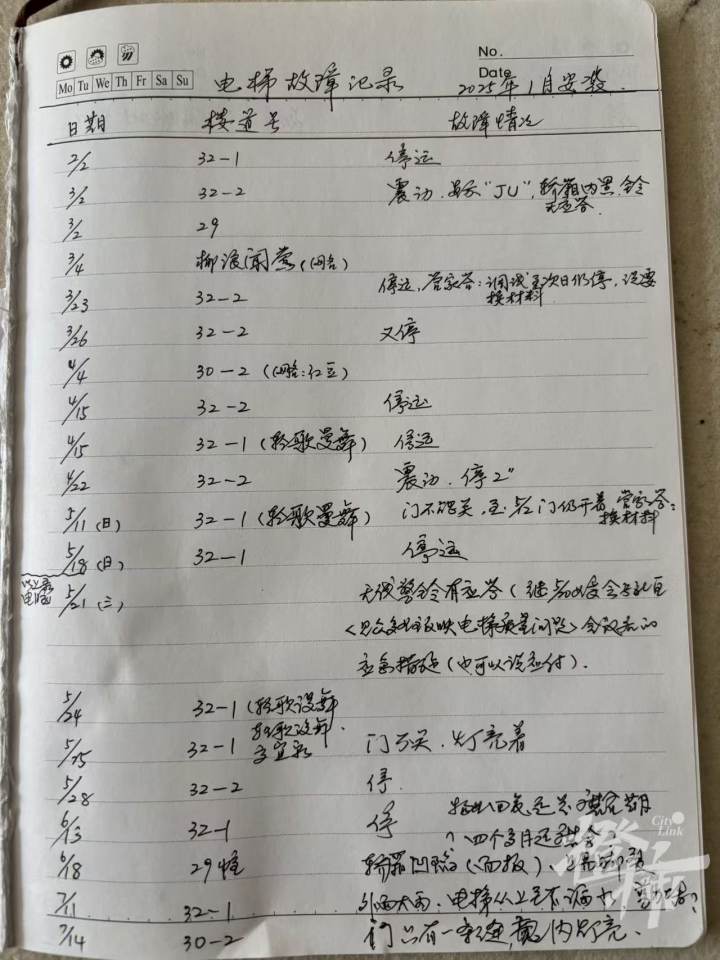 No.
Mo Tu We Th Fr Sa Su
Date
电梯故障记录 2025年1月安装.
日期 楼道号 故障情况
2/2 32-1 停运
3/2 32-2 震动. "JU", 轿厢内黑. 铃
无应答.
3/2 29
3/4 柳浪闻莺(网名)
3/23 32-2 停运, 管家答: 调试至次日仍停, 说要
换材料
3/26 32-2 又停
4/4 30-2 (网名:红豆)
4/15 32-2 停运
4/15 32-1 (轻歌曼舞) 停运
4/22 32-2 震动. 停2"
5/11 (日) 32-1 (轻歌曼舞) 门不能关, 至5/12门仍开着, 管家答:
换材料
5/18 (日) 32-1 停运
5/21 (三) 无线警铃有应答(继5/20
反映电梯质量问题>会议后的
应急措施(也可以说应付).
5/24 32-1 (轻歌漫舞
5/25 32-1 轻歌漫舞. 门不关. 灯亮着
5/28 32-2 停.
6/13 32-1 停
?四个多月还
6/18 29幢 轿厢凹陷(面板)
7/11 32-1 外面大雨. 电梯从上至下漏水
7/14 30-2 门只有一条缝, 内灯亮.
City Link
橙柿